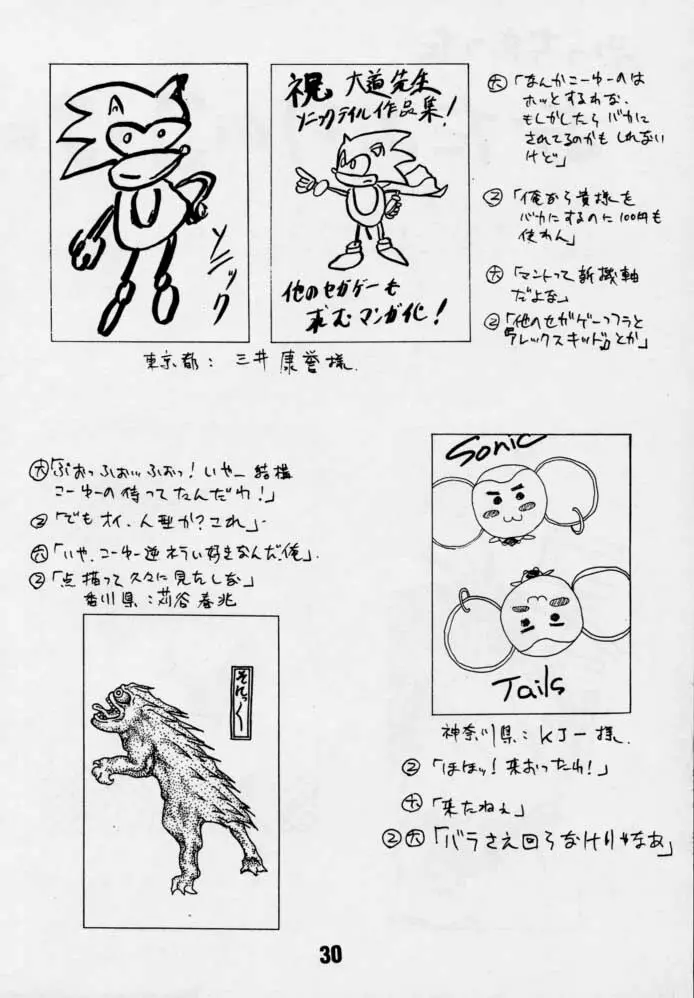 ソニック
祝 大道先生
ソニックテイル作品集!
他のセガゲーも
求むマンガ化!
東京都: 三井康誉様.
大「なんかこーゆーのは
ホッとするわな.
もしかしたらバカに
されてるのかもしれない
けど」
2「俺が貴様を
バカにするのに100円も
使わん」
大「マントって新機軸
だよな」
2「他のセガゲーっつうと
『アレックスキッド』とか」
大「ぶおっふおぉッふおっ!いやー結構
こーゆーの待ってたんだわ!」
2「でもオイ、人型か?これ」
大「いや、こーゆー逆ねらい好きなんだ俺」.
2「点描って久々に見たしな」
香川県:苅谷春兆
そにっく
Sonic
Tails
神奈川県:KJー様.
2「ほほッ!来おったわ!」
大「来たねぇ」
2大「バラさえ回らなけりゃなあ」
30